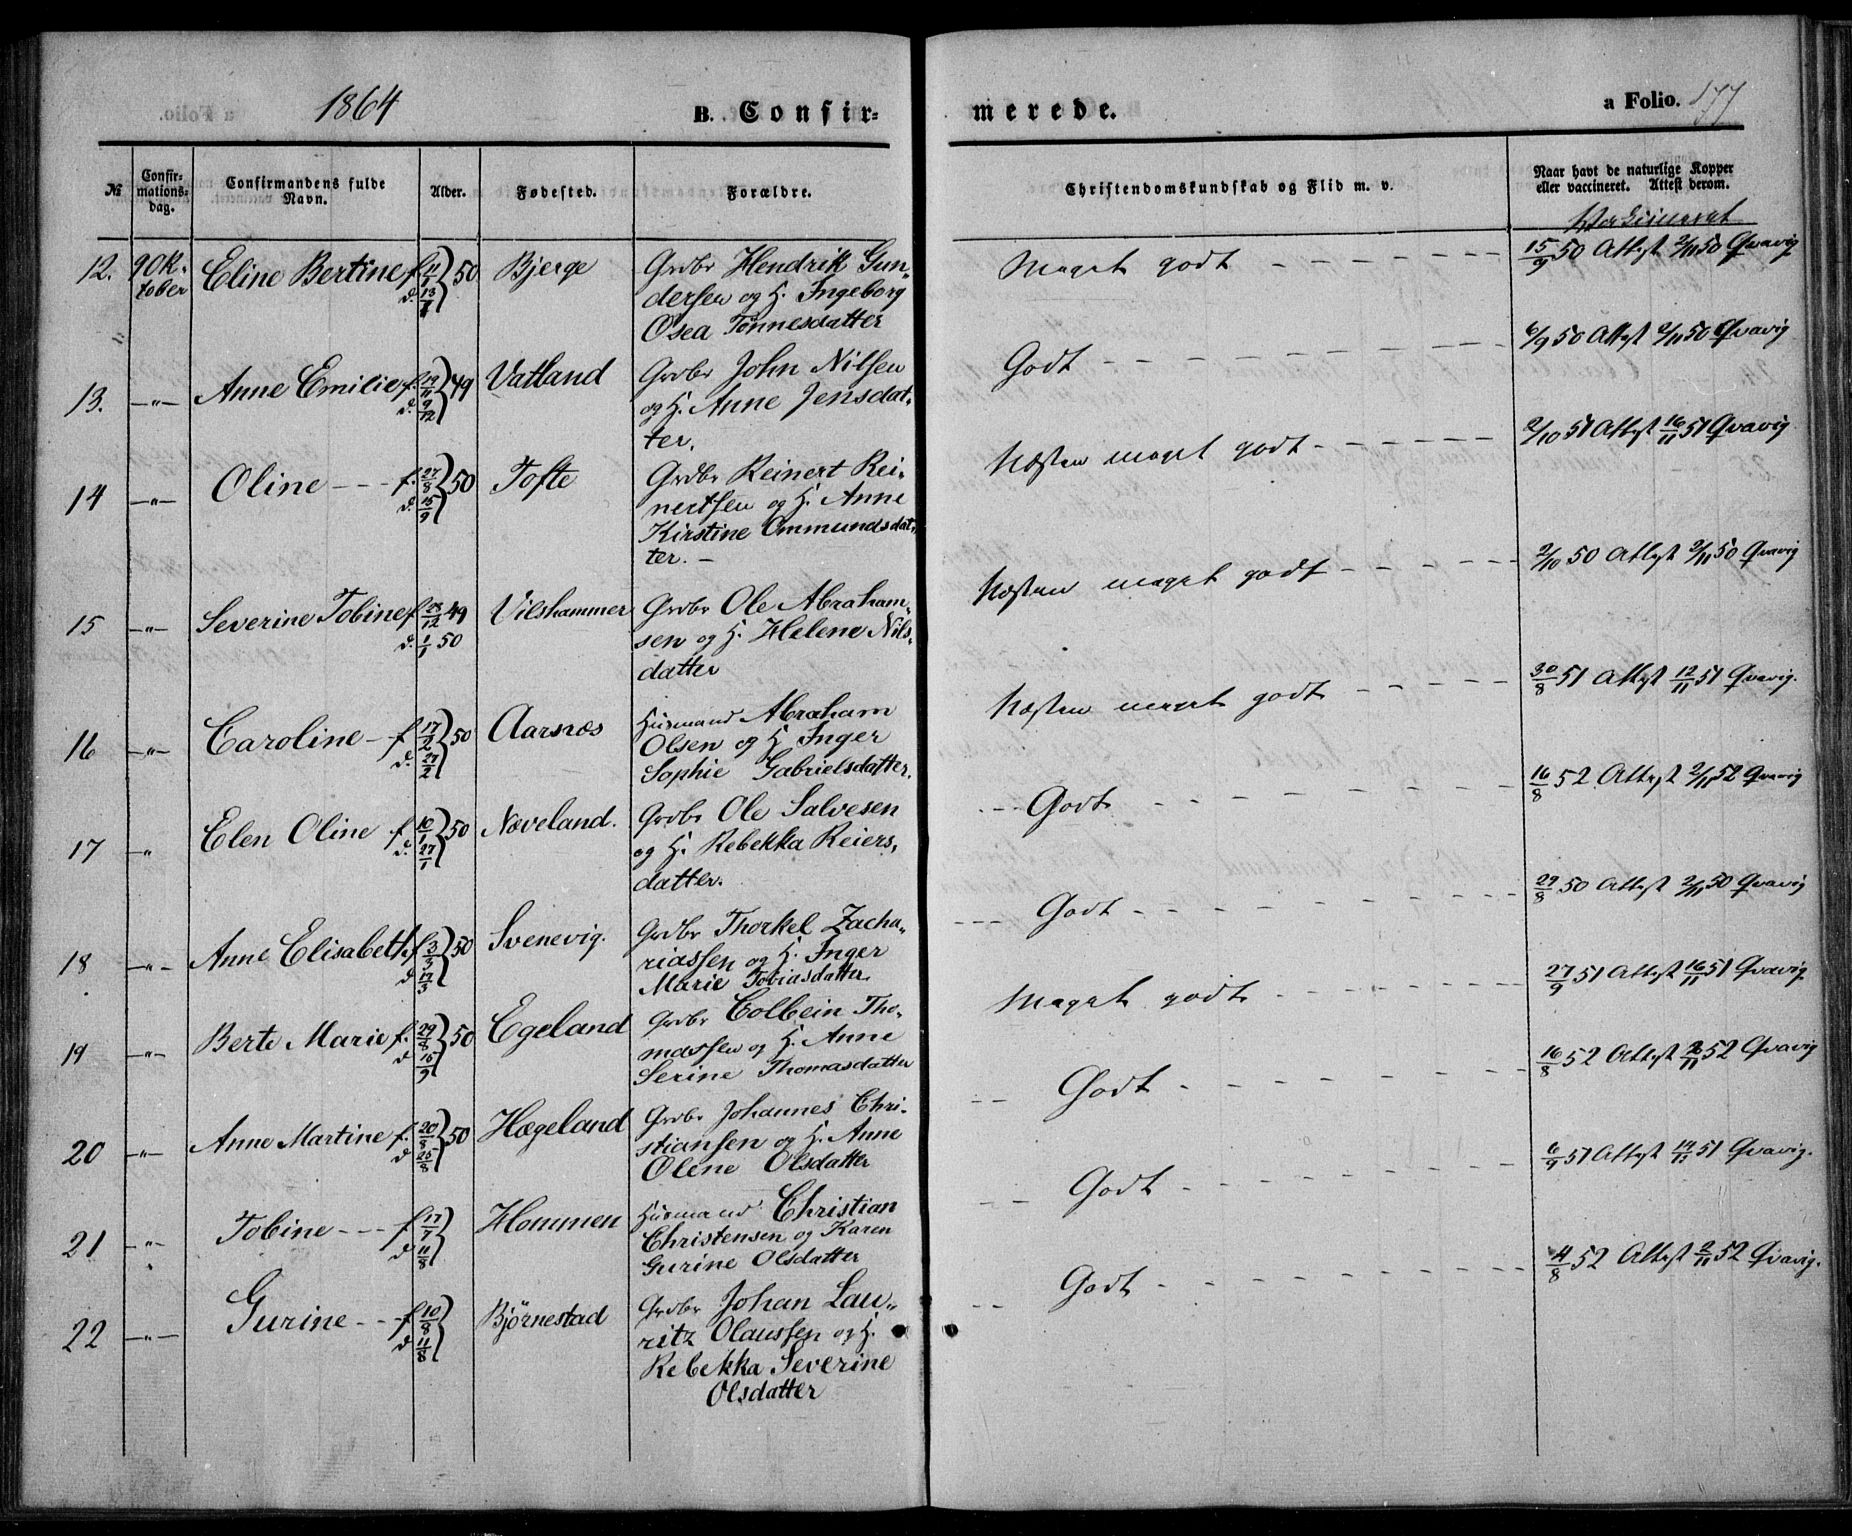 1864
B. Confir-
merede.
a Folio. 177
№
Confir-
mations-
dag.
Confirmandens fulde
Navn.
Alder.
Fødested.
Forældre.
Christendomskundskab og Flid m. v.
Naar havt de naturlige Kopper
eller vaccineret. Attest derom.
Vakcineret
12. 9 Ok- Eline Bertine f. 50 Bjerge Grdbr Hendrik Gun-
tober d. dersen og H. Ingeborg
Osea Tønnesdatter
Meget godt - - - - - 15/9 50 Attest 2/11 50 Qvavig
13. -"- Anne Emilie f. 19/11 49 Vatland Grdbr John Nilsen
d. 9/12 og H. Anne Jensdat-
ter.
Godt - - - - - 6/9 50 Attest 2/11 50 Qvavig
14 -"- Oline - - - f. 27/8 50 Tofte Grdbr Reinert Rei-
d. 15/9 nertsen og H. Anne
Kirstine Ommundsdat-
ter. -
Næsten meget godt - - - - - 2/10 51 Attest 16/11 51 Qvavig
15 -"- Severine Tobine f. 23/12 49 Vilshammer Grdbr Ole Abraham-
d. 1/1 50 sen og H. Helene Nils-
datter
Næsten meget godt - - - - - 2/10 50 Attest 2/11 50 Qvavig
16 -"- Caroline - f. 17/2 50 Aarsnæs Husmand Abraham
d. 27/2 Olsen og H. Inger
Sophie Gabrielsdatter.
Næsten meget godt - - - - 30/8 51 Attest 12/11 51 Qvavig.
17 " Elen Oline f. 10/1 50 Næveland. Grdbr Ole Salvesen
d. 27/1 og H. Rebekka Reiers-
datter.
- - - Godt - - - - - 16/8 52 Attest 2/11 52 Qvavig
18 -"- Anne Elisabeth. f. 3/3 50 Svenevig. Grdbr Thorkel Zacha-
d. 17/3 riassen og H. Inger
Marie Tobiasdatter.
- - - Godt - - - - - 29/8 50 Attest 2/11 50 Qvavig
19 -"- Berte Marie f. 29/8 50 Egeland Grdbr Colbein Tho-
d. 15/9 massen og H. Anne
Serine Thomasdatter
Meget godt - - - - - 27/9 51 Attest 16/11 51 Qvavig
20 -"- Anne Martine f. 20/8 50 Hægeland Grdbr Johannes Chri-
d. 25/8 stiansen og H. Anne
Oline Olsdatter
- - Godt - - - - - 16/8 52 Attest 2/11 52 Qvavig
21 -"- Tobine - - - f. 17/7 Hommen Husmand Christian
d. 11/8 Christensen og Karen
Gurine Olsdatter
- - Godt - - - - - 6/9 51 Attest 14/11 51 Qvavig.
22 -"- Gurine - - f. 10/8 Bjørnestad Grdbr Johan Lau-
d. 11/8 ritz Olaussen og H.
Rebekka Severine
Olsdatter
- - Godt - - - - - 4/8 52 Attest 2/11 52 Qvavig.